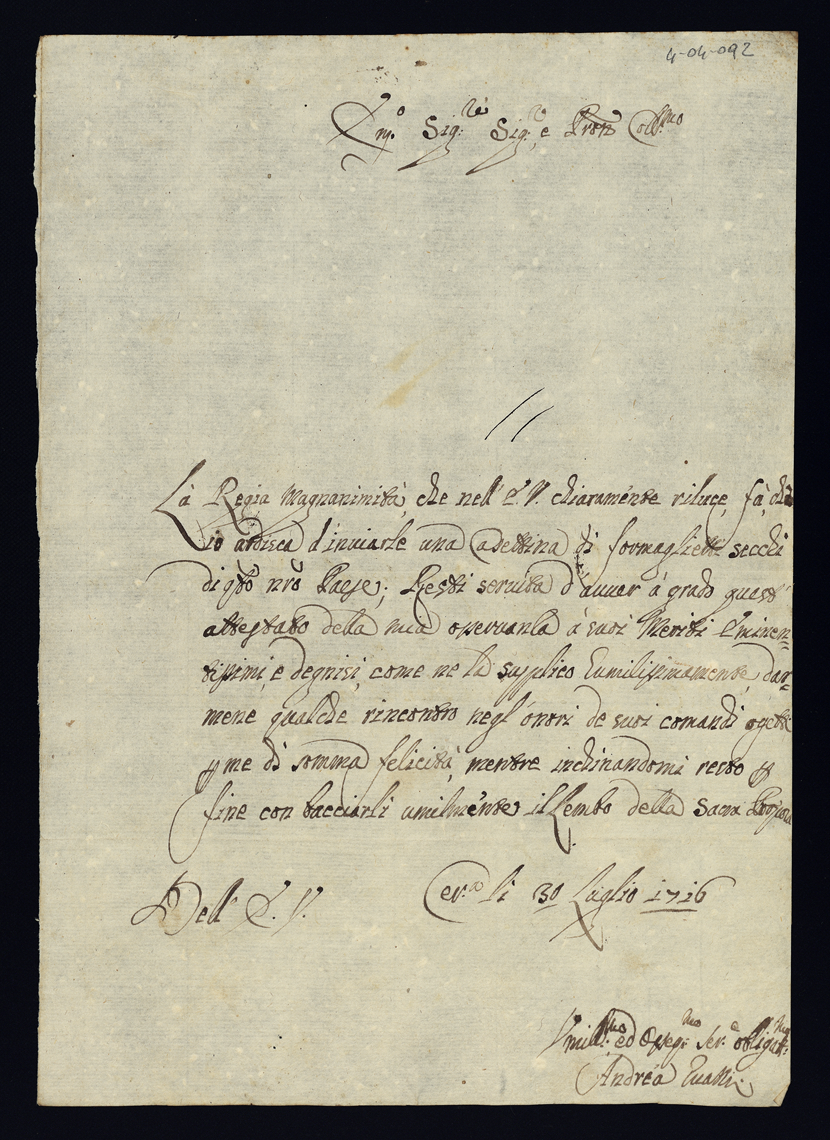 4-04-092
Em.o Sig.re Sig.re e Prone Coll.mo
Là Regia Magnanimità, che nell' E. V. chiaramente riluce, fà, ch'
io ardisca d'inuiarle una Cadettina di formaglietti secchi
di qto nro Paese; Resti seruita d'auuer à grado questo
attestato della mia osseruanza à suoi Meriti Eminen=
tissimi, e degnisi, come ne la supplico Eumilissimamente, dar=
mene qualche rincontro negl'onori de suoi comandi ogetti
p me di somma felicità, mentre inchinandomi resto p
fine con bacciarli umilmente il Lembo della Sacra Porpora
Dell' E. V.
Cer.a li 30 Luglio 1716
Vmill.mo ed Osseq.mo Ser.e obligat.mo
Andrea